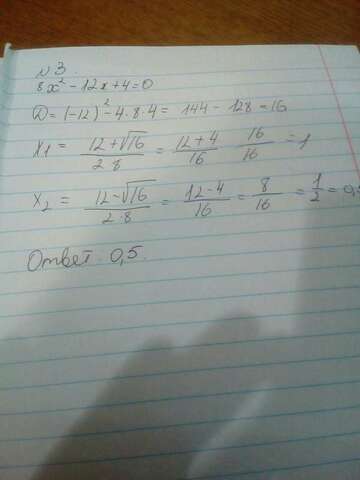 №3.
8x² - 12x + 4 = 0
D = (-12)² - 4·8·4 = 144 - 128 = 16
x1 = 12+√16 / 2·8 = 12+4 / 16 16/16 = 1
x2 = 12-√16 / 2·8 = 12-4 / 16 = 8/16 = 1/2 = 0,
Ответ. 0,5.